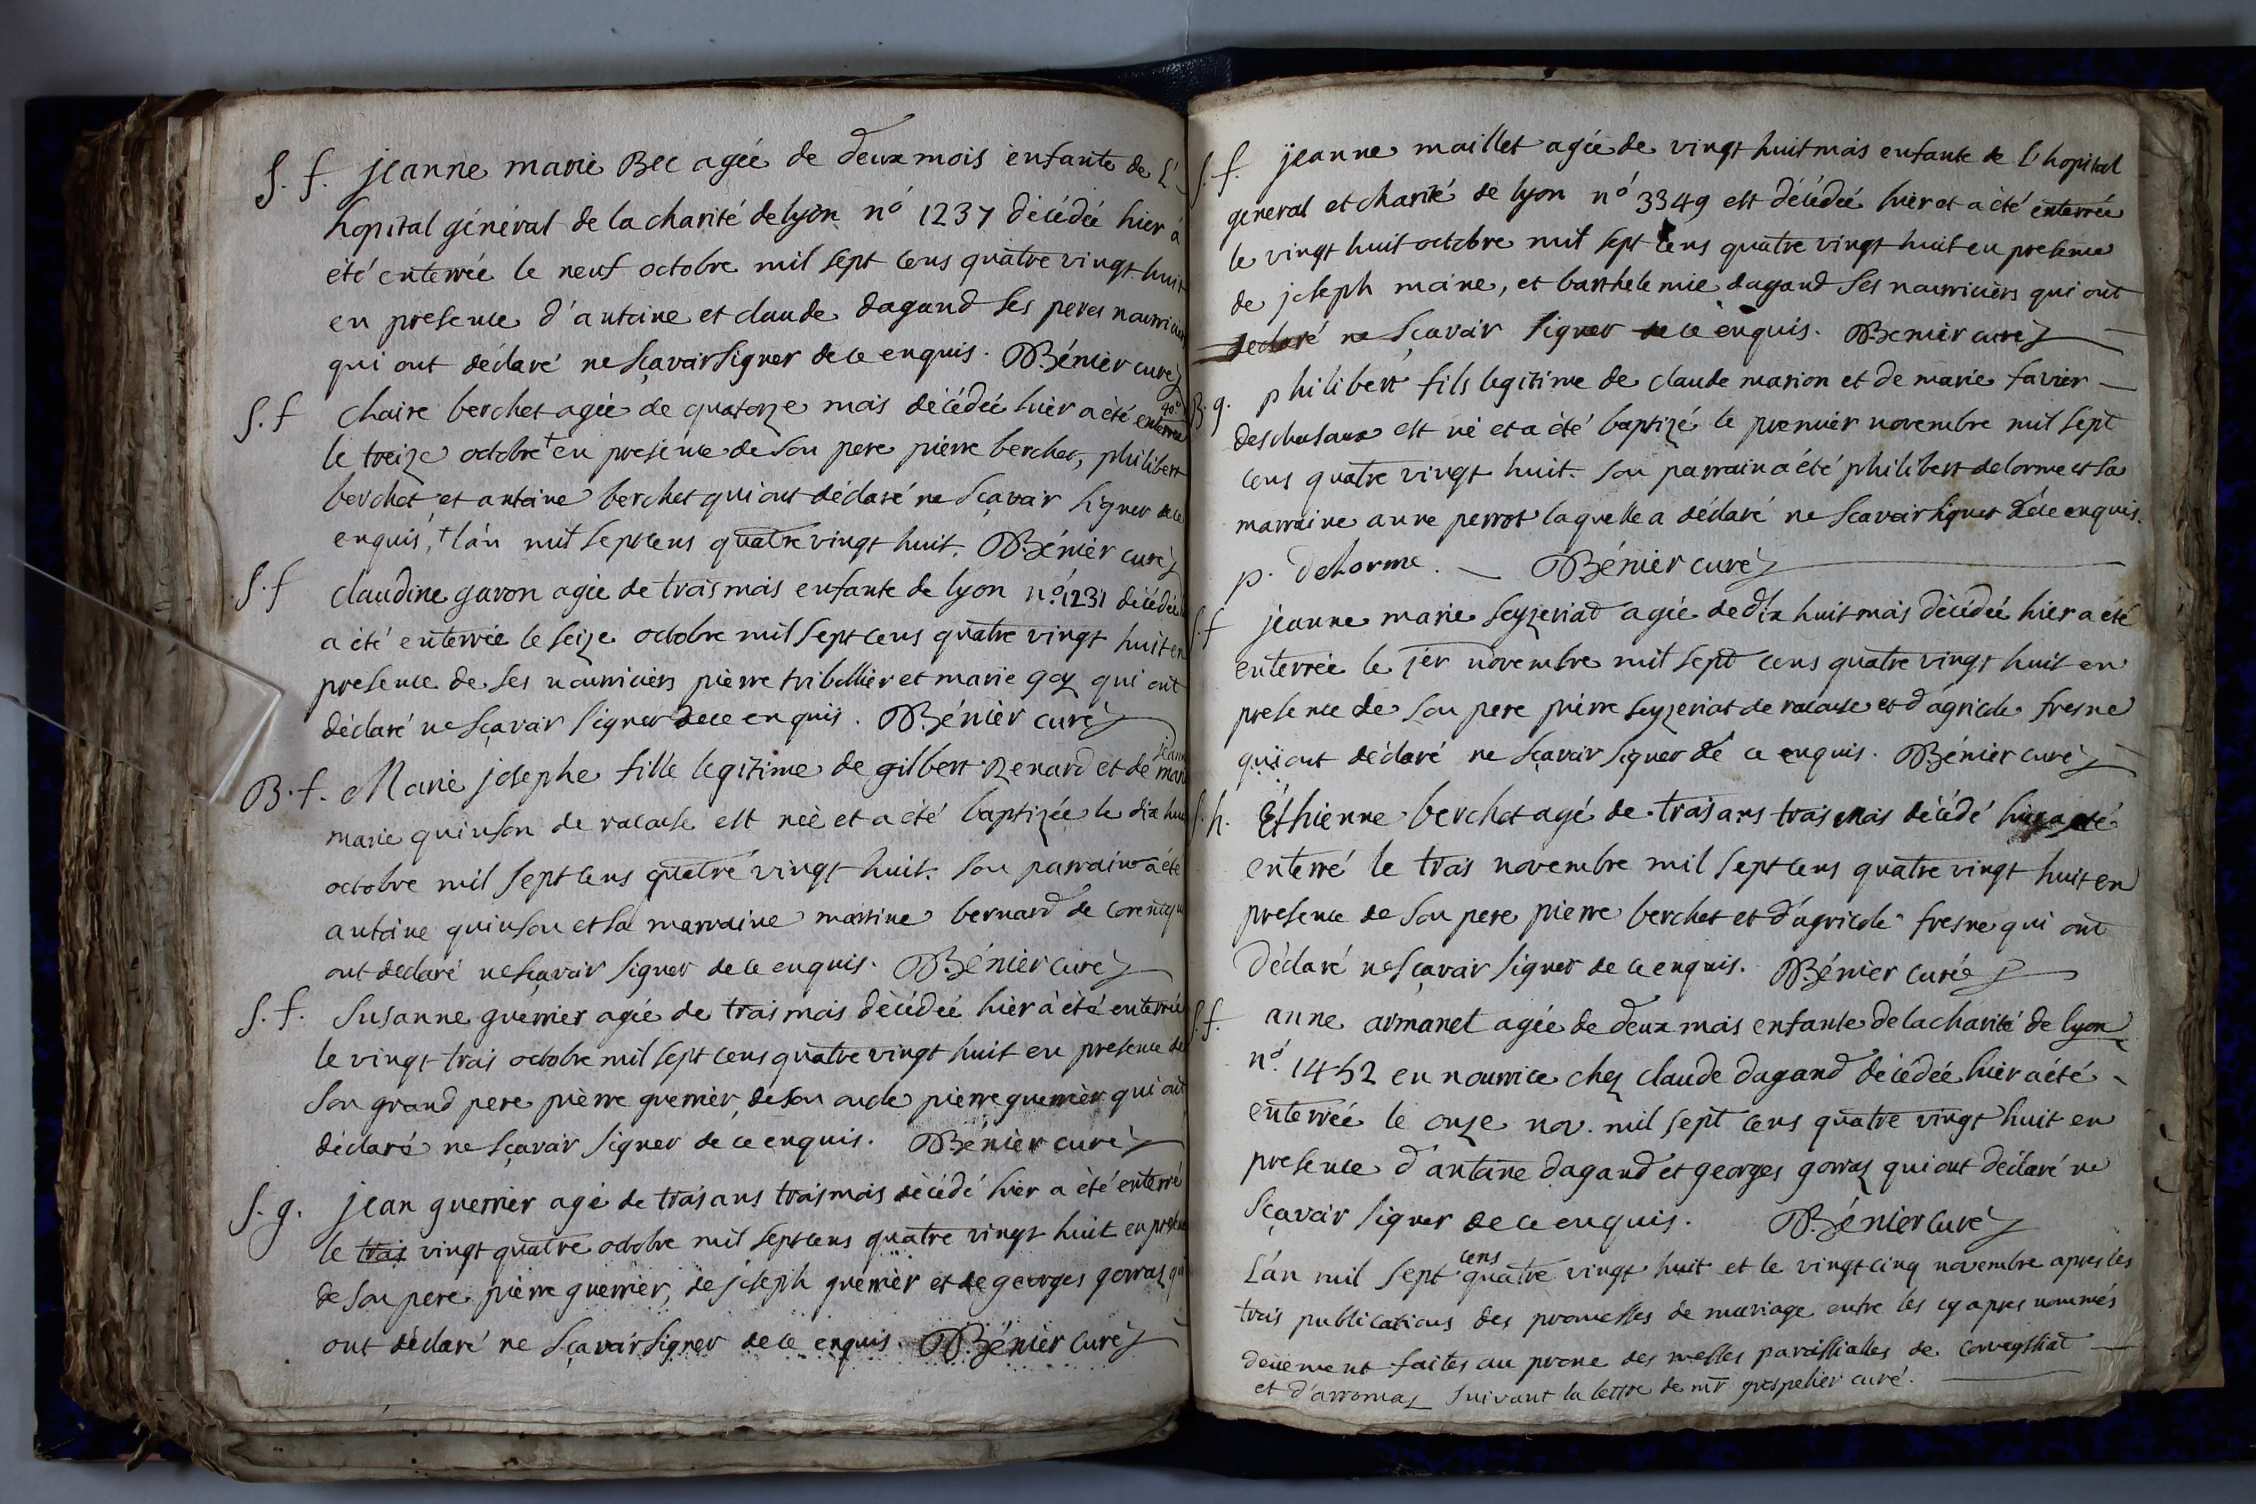 S. f. jeanne marie Bec agée de deux mois enfante de L'
hopital général de la charité de lyon nº 1237 décédée hier à
été enterrée le neuf octobre mil sept cens quatre vingt huit
en presence d'antoine et claude dagand ses peres nourriciers
qui ont déclaré ne sçavoir signer de ce enquis. Bénier curé
S. f claire berchet agée de quatorze mois décédée hier a été enterrée
le treize octobre + en presence de son pere pierre berchet, philibert
berchet et antoine berchet qui ont déclaré ne sçavoir signer de ce
enquis, + l'an mil sept cens quatre vingt huit. Bénier curé
S. f claudine gavon agée de trois mois enfante de lyon nº 1231 décédée
a été enterrée le seize octobre mil sept cens quatre vingt huit en
presence de ses nourriciers pierre tribollier et marie goy qui ont
déclaré ne sçavoir signer de ce enquis. Bénier curé
jeanne
B. f. Marie josephe fille legitime de gilbert Renard et de marie
marie quinson de racouse est née et a été baptizée le dix huit
octobre mil sept cens quatre vingt huit. son parrain a été
antoine quinson et sa marraine marine bernard de corent qui
ont declaré ne sçavoir signer de ce enquis. Bénier curé
S. f. Susanne guerrier agée de trois mois décédée hier à été enterrée
le vingt trois octobre mil sept cens quatre vingt huit en presence de
son grand pere pierre guerrier, de son oncle pierre guerrier qui ont
déclaré ne sçavoir signer de ce enquis. Bénier curé
S. g. jean guerrier agé de trois ans trois mois décédé hier a été enterré
le trois vingt quatre octobre mil sept cens quatre vingt huit en presence
de son pere pierre guerrier, de joseph guerrier et de georges gorraz qui
ont déclaré ne sçavoir signer de ce enquis. Bénier curé
S. f. jeanne maillet agée de vingt huit mois enfante de l'hopital
general et charité de lyon nº 3349 est décédée hier et a été enterrée
le vingt huit octobre mil sept cens quatre vingt huit en presence
de joseph moine, et barthelemie dagand ses nourriciers qui ont
declaré ne sçavoir signer de ce enquis. Benier curé
B. g. philibert fils legitime de claude marion et de marie favier
deschasaux est né et a été baptizé le premier novembre mil sept
cens quatre vingt huit. son parrain a été philibert delorme et sa
marraine anne perrot laquelle a déclaré ne sçavoir signer de ce enquis.
p. delorme. Bénier curé
S. f jeanne marie seyzeriat agée de dix huit mois décédée hier a été
enterrée le 1er novembre mil sept cens quatre vingt huit en
presence de son pere pierre seyzeriat de racouse et d'agricole fresne
qui ont déclaré ne sçavoir signer de ce enquis. Bénier curé
S. h. Éthienne berchet agé de trois ans trois mois décédé hier a été
enterré le trois novembre mil sept cens quatre vingt huit en
presence de son pere pierre berchet et d'agricole fresne qui ont
déclaré ne sçavoir signer de ce enquis. Bénier curé
S. f. anne armanet agée de deux mois enfante de la charité de lyon
nº. 1452 en nourrice chez claude dagand décédée hier a été
enterrée le onze nov. mil sept cens quatre vingt huit en
presence d'antoine dagand et georges gorraz qui ont déclaré ne
sçavoir signer de ce enquis. Bénier curé
cens
L'an mil sept quatre vingt huit et le vingt cinq novembre apres les
trois publications des promesses de mariage entre les cy apres nommés
deüement faites au prone des messes paroissialles de corveyssiat
et d'arromas suivant la lettre de mr grospelier curé.